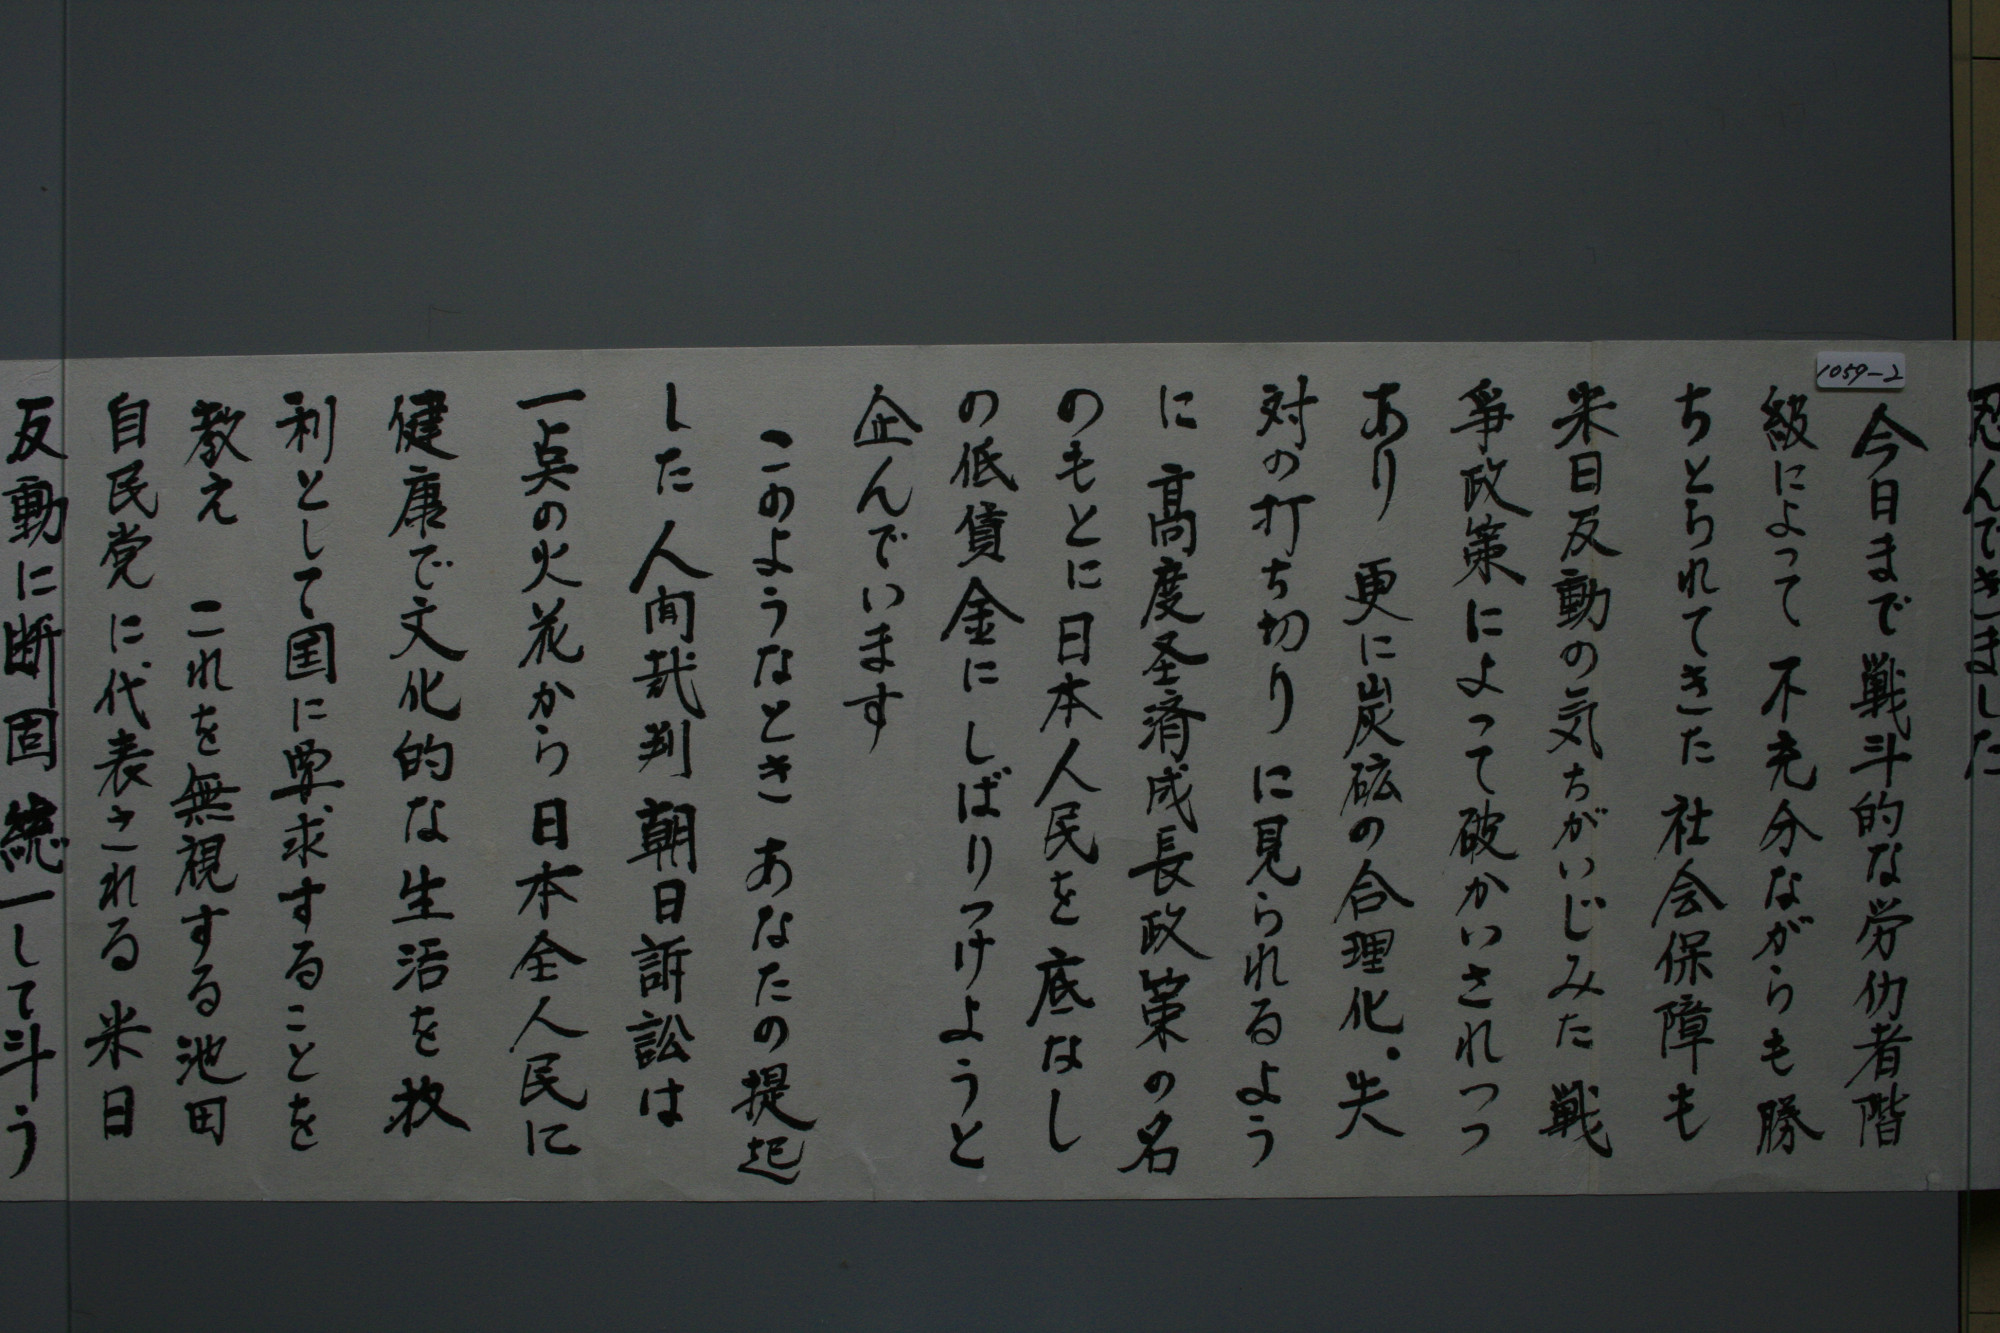 忍んできました
今日まで戦斗的な労仂者階
級によって不充分ながらも勝
ちとられてきた社会保障も
米日反動の気ちがいじみた戦
争政策によって破かいされつつ
あり 更に炭砿の合理化.失
対の打ち切りに見られるよう
に高度圣済成長政策の名
のもとに日本人民を底なし
の低賃金にしばりつけようと
企んでいます
このようなとき あなたの提起
した人间裁判 朝日訴訟は
一点の火花から日本全人民に
健康で文化的な生活を权
利として国に要求することを
教え これを無視する池田
自民党に代表される米日
反動に断固統一して斗う
1059-2